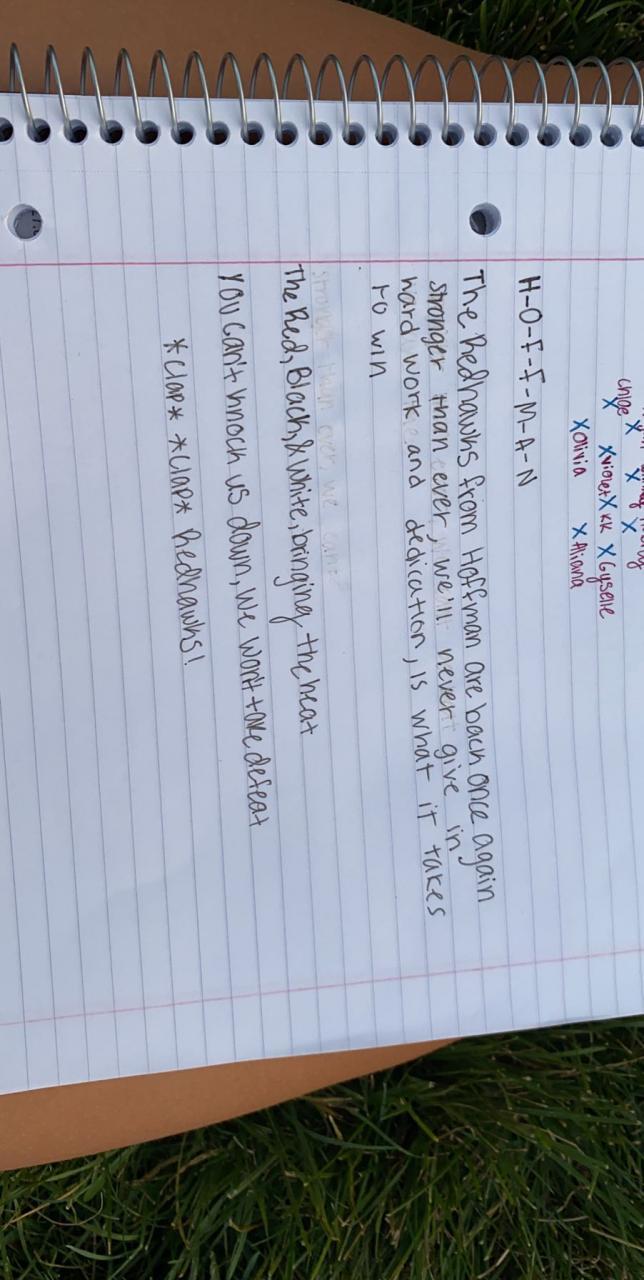 Chloe X X X
X Violet X KK X Gyselle
X Olivia X Aliana
H-O-F-F-M-A-N
The Redhawks from Hoffman are back once again
stronger than ever, we'll never give in,
hard work and dedication, is what it takes
to win
stronger than ever, we
The Red, Black, & White, bringing the heat
You can't knock us down, we won't take defeat
*clap* *clap* Redhawks!